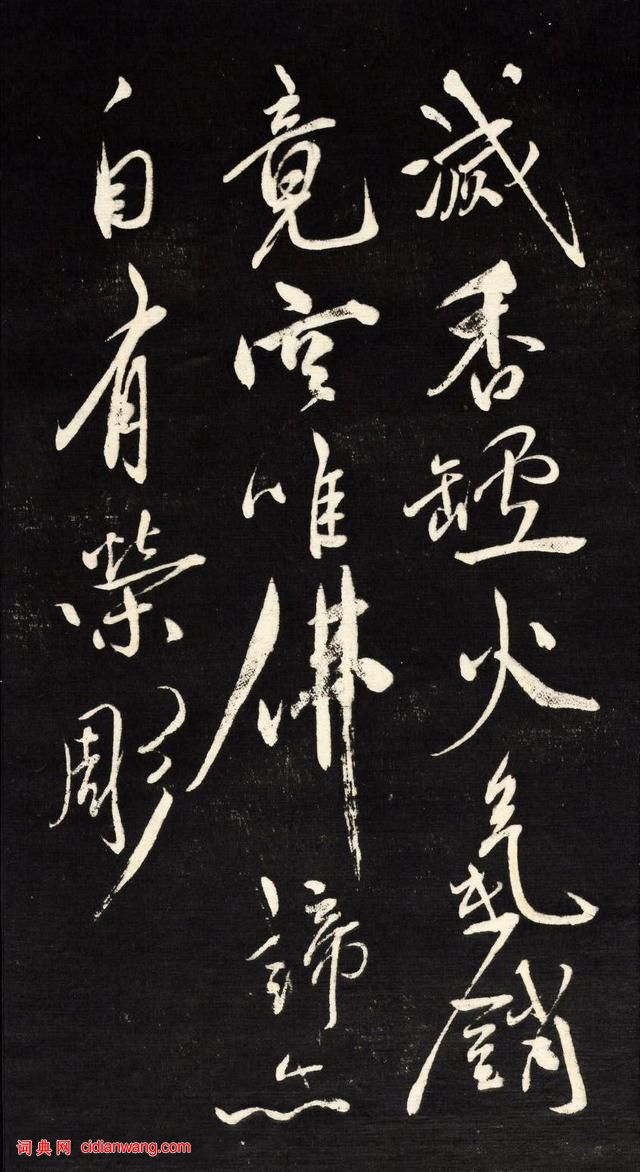 滅香罏火氣銷
竟空唯佛諦亦
自有榮彫
词典网 cidianwang.com